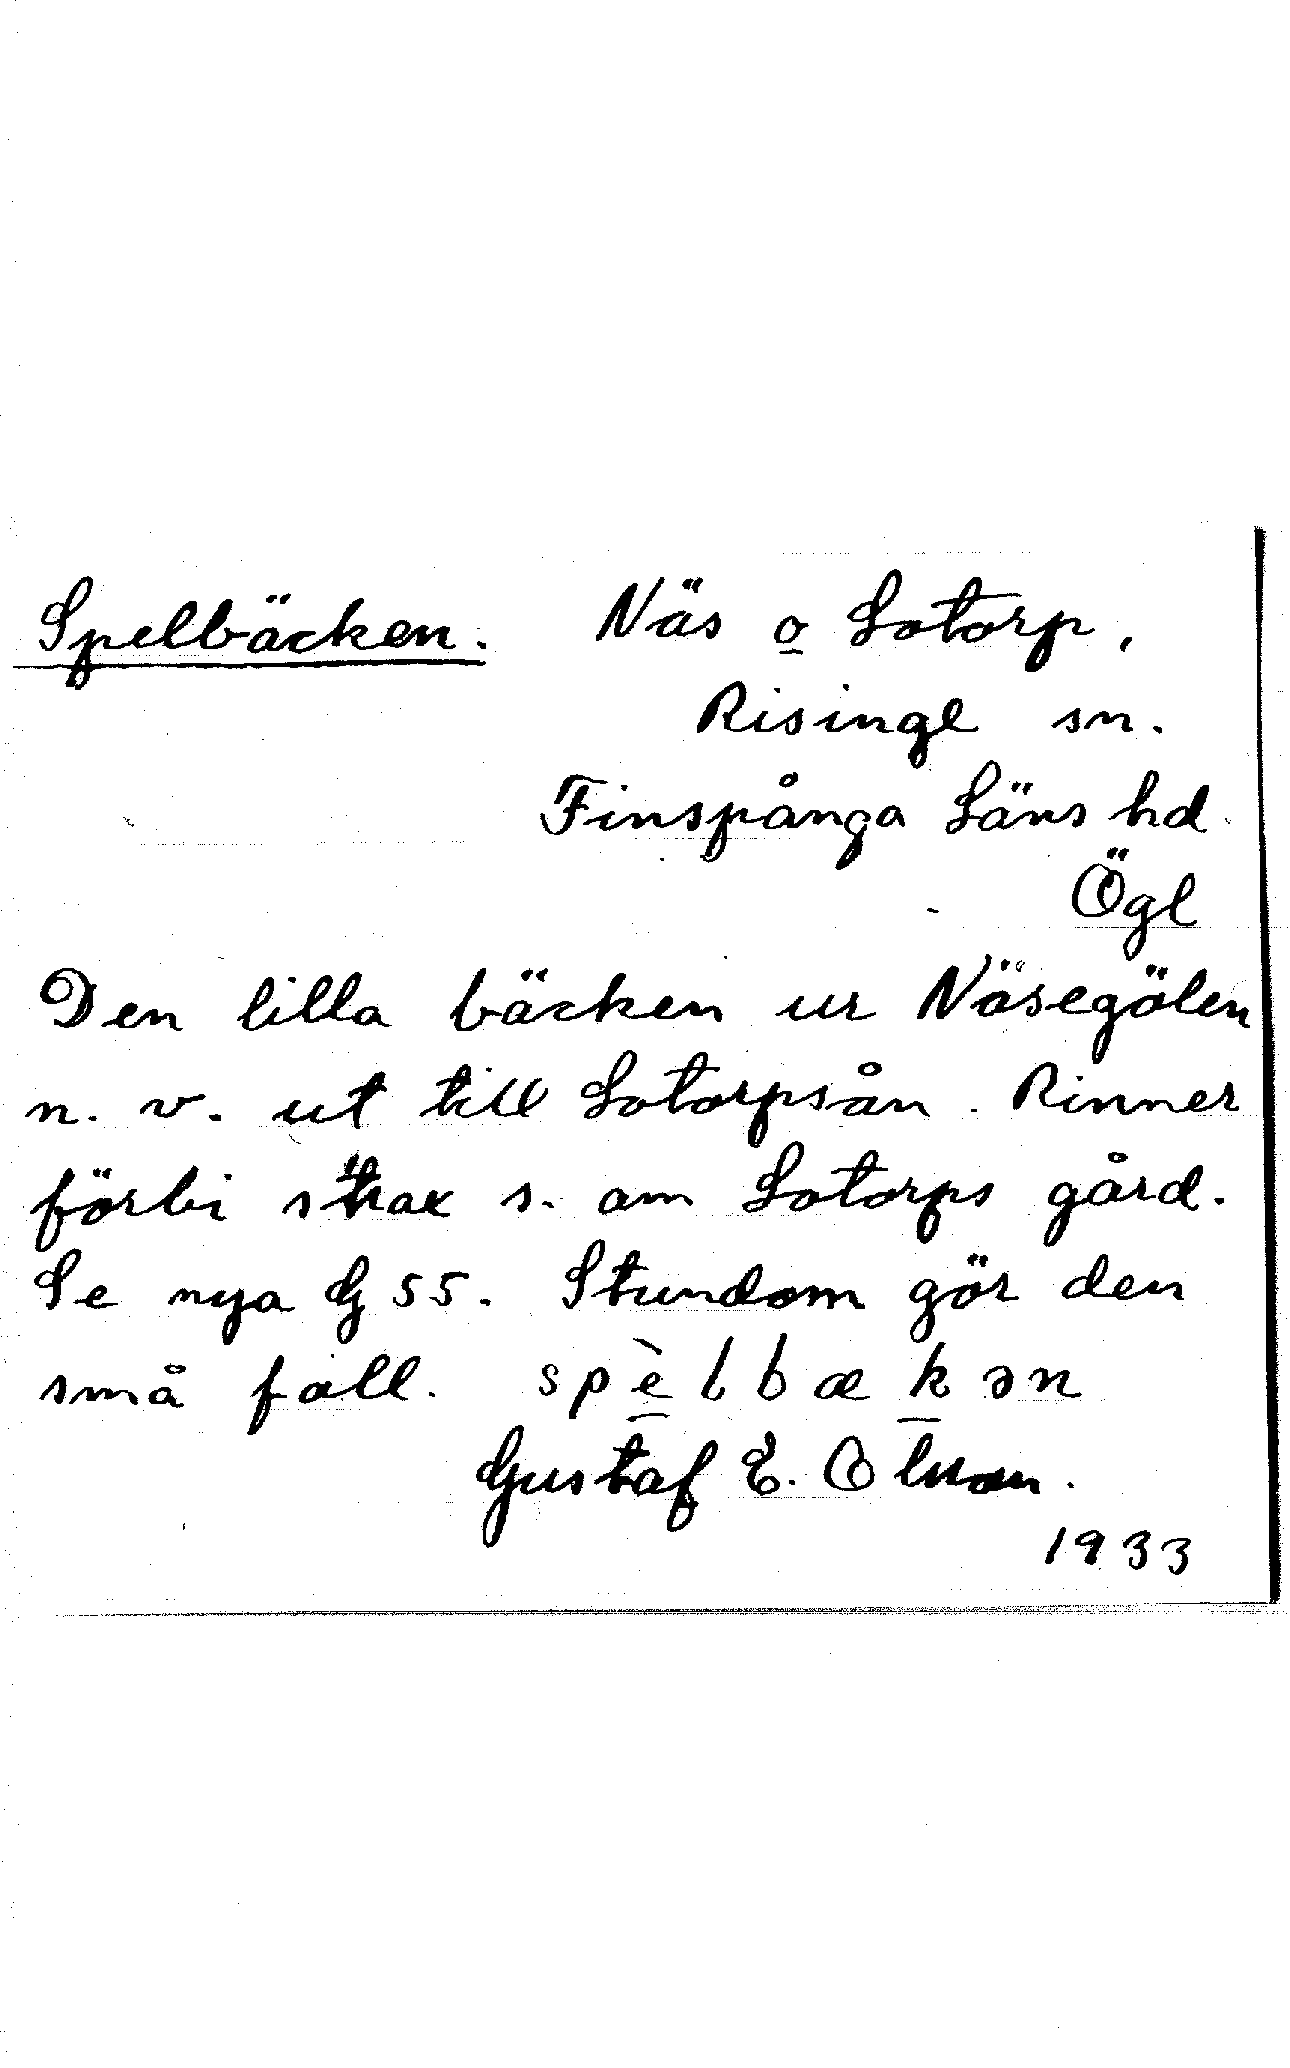 Spelbäcken. Näs o Lotorp,
Risinge sn.
Finspånga Läns hd.
Ögl
Den lilla bäcken ur Näsegölen
n. v. ut till Lotorpsån. Rinner
förbi strax s. om Lotorps gård.
Se nya G 55. Stundom gör den
små fall. spèlbækən
Gustaf E. Olsson.
1933